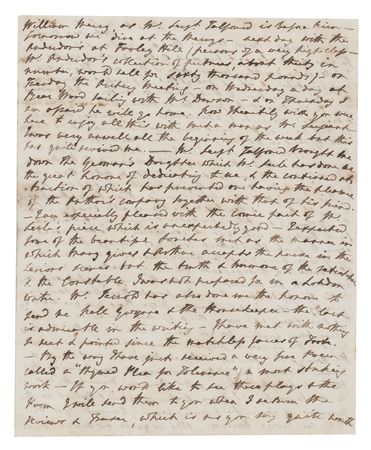 William Harry as Mr. Serjt Talfourd is before him —
tomorrow we dine at the — next day with the
at Farley Hill (persons of a very high class —
Mr. collection of pictures, about thirty in
number, would sell for sixty thousand pounds) — on
the Meeting — on Wednesday a day at
Wood with Mr Dawson — & on Thursday I
am afraid he will go home. How I heartily wish you were
here to enjoy all this with such a man as Mr Serjeant —
I was very the beginning of the week but this
has quite revived me — Mr Serjt Talfourd brought me
down the Yeoman's Daughter which Mr has done me
the great honour of dedicating to me & the continued
of which has procured me the pleasure
of the Author's company together with that of his friend.
— I am especially pleased with the comic part of Mr
piece which is unexpectedly good — I expected
some of the beautiful touches such as the manner in
which Mary gives & Arthur accepts the purse in the
serious scenes but the truth & humour of the
& the Constable I was not prepared for in a London
writer. Mr Jerrold has also done me the honour to
send me Nell Gwynne & the Housekeeper — the last
is admirable in the writing. I have met with nothing
so neat & pointed since the matchless farces of
— By the way I have just received a very fine Poem
called a "Rhymed Plea for Tolerance" a most
work — If you would like to see these plays & the
Poem I will send them to you when I return the
Reviews & Fraser, which is as you say quite worth